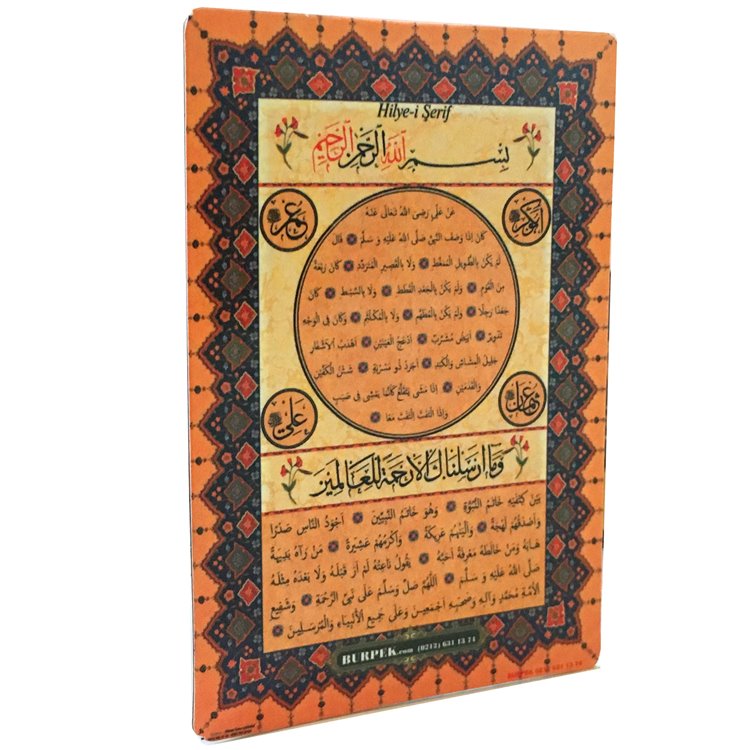 Hilye-i Şerif
بِسْمِ اللهِ الرَّحْمٰنِ الرَّحِيمِ
ابوبكر
عمر
عَنْ عَلِيٍّ رَضِىَ اللهُ تَعَالٰى عَنْهُ
كَانَ اِذَا وَصَفَ النَّبِىَّ صَلَّى اللهُ عَلَيْهِ وَ سَلَّمَ قَالَ
لَمْ يَكُنْ بِالطَّوِيلِ الْمُمَغَّطِ وَلَا بِالْقَصِيرِ الْمُتَرَدِّدِ كَانَ رَبْعَةً
مِنَ الْقَوْمِ وَلَمْ يَكُنْ بِالْجَعْدِ الْقَطَطِ وَلَا بِالسَّبْطِ كَانَ
جَعْدًا رَجِلًا وَلَمْ يَكُنْ بِالْمُطَهَّمِ وَلَا بِالْمُكَلْثَمِ وَكَانَ فِى الْوَجْهِ
تَدْوِيرٌ اَبْيَضُ مُشْرَبٌ اَدْعَجُ الْعَيْنَيْنِ اَهْدَبُ الْاَشْفَارِ
جَلِيلُ الْمُشَاشِ وَالْكَتَدِ اَجْرَدُ ذُو مَسْرُبَةٍ شَثْنُ الْكَفَّيْنِ
وَالْقَدَمَيْنِ اِذَا مَشَى يَتَقَلَّعُ كَاَنَّمَا يَمْشِى فِى صَبَبٍ
وَاِذَا الْتَفَتَ الْتَفَتَ مَعًا
عثمان
علي
وَمَا اَرْسَلْنَاكَ اِلَّا رَحْمَةً لِلْعَالَمِينَ
بَيْنَ كَتِفَيْهِ خَاتَمُ النُّبُوَّةِ وَهُوَ خَاتَمُ النَّبِيِّينَ اَجْوَدُ النَّاسِ صَدْرًا
وَاَصْدَقُهُمْ لَهْجَةً وَاَلْيَنُهُمْ عَرِيكَةً وَاَكْرَمُهُمْ عَشِيرَةً مَنْ رَآهُ بَدِيهَةً
هَابَهُ وَمَنْ خَالَطَهُ مَعْرِفَةً اَحَبَّهُ يَقُولُ نَاعِتُهُ لَمْ اَرَ قَبْلَهُ وَلَا بَعْدَهُ مِثْلَهُ
صَلَّى اللهُ عَلَيْهِ وَ سَلَّمَ اَللّٰهُمَّ صَلِّ وَسَلِّمْ عَلٰى نَبِىِّ الرَّحْمَةِ وَشَفِيعِ
الْاُمَّةِ مُحَمَّدٍ وَآلِهِ وَصَحْبِهِ اَجْمَعِينَ وَعَلٰى جَمِيعِ الْاَنْبِيَاءِ وَالْمُرْسَلِينَ
BURPEK.com (0212) 631 13 74
BURPEK 0212 631 13 74